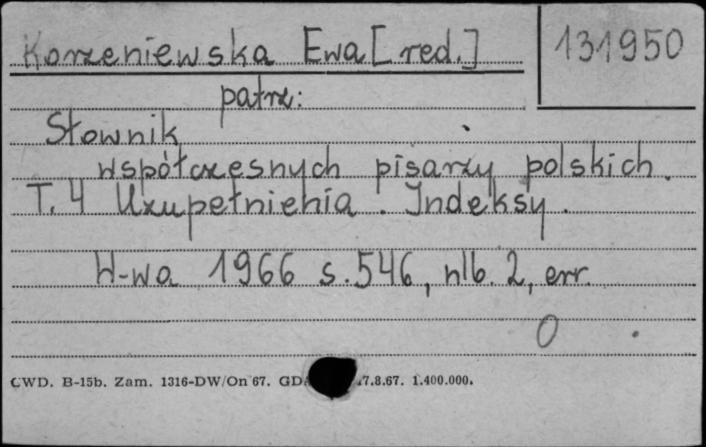 Korzeniewska Ewa [red.]
131950
patrz:
Słownik
współczesnych pisarzy polskich.
T. 4 Uzupełnienia. Indeksy.
W-wa 1966 s. 546, nlb. 2, err.
0
CWD. B-15b. Zam. 1316-DW/On 67. GD 7.8.67. 1.400.000.